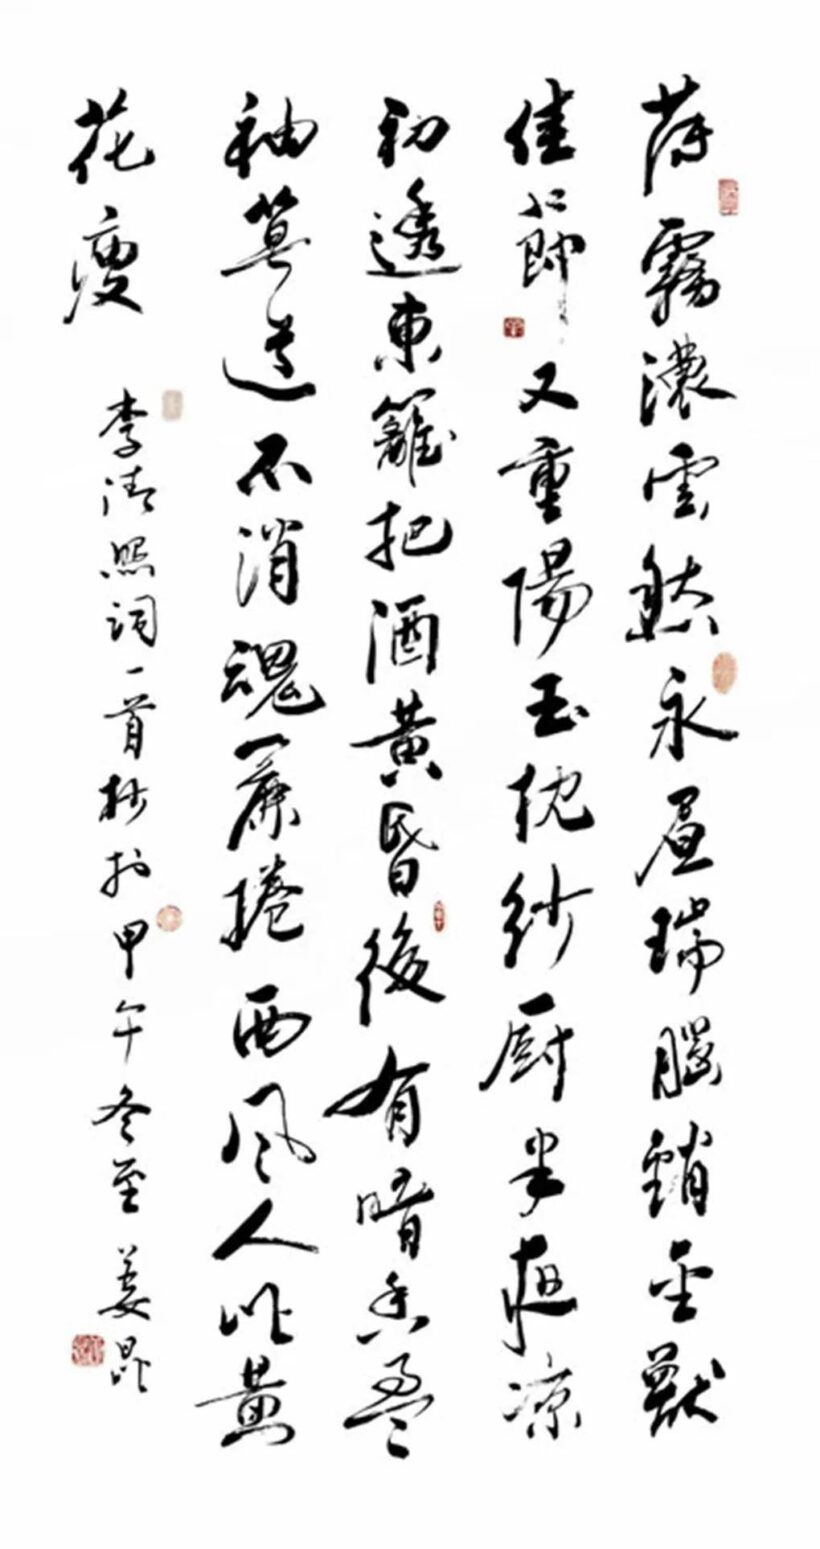 薄霧濃雲愁永晝瑞腦銷金獸
佳節又重陽玉枕紗厨半夜凉
初透東籬把酒黃昏後有暗香盈
袖莫道不消魂簾捲西風人比黃
花瘦
李清照詞一首抄於甲午冬至 姜昆